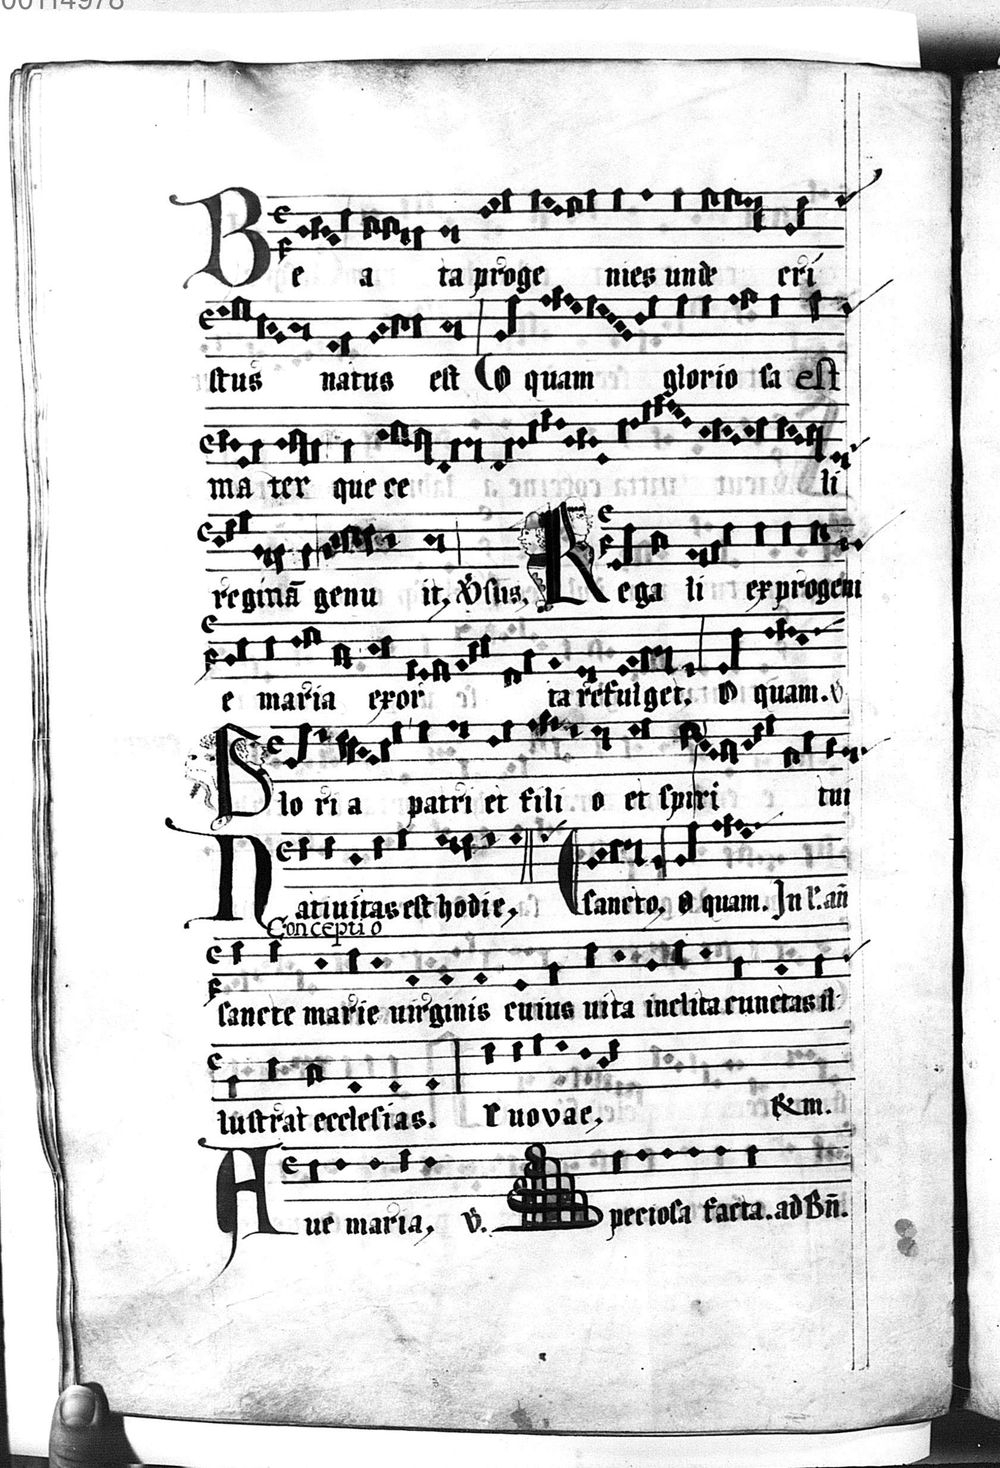 00114978
Be a ta proge nies unde cri
stus natus est O quam glorio sa est
ma ter que ce li
reginā genu it, V̇sus, Rega li ex progeni
e maria exor ta refulget. O quam. v
Glo ri a patri et fili o et spiri tui
Natiuitas est hodie, sancto, O quam. In l. añ
Conceptio
sancte marie uirginis cuius uita inclita cunctas il
lustrat ecclesias. Euovae, Rm.
Aue maria, V̇. Speciosa facta. ad Bñ.